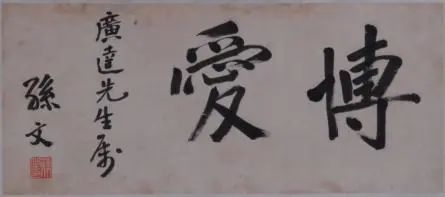 博愛
廣達先生屬
孫文